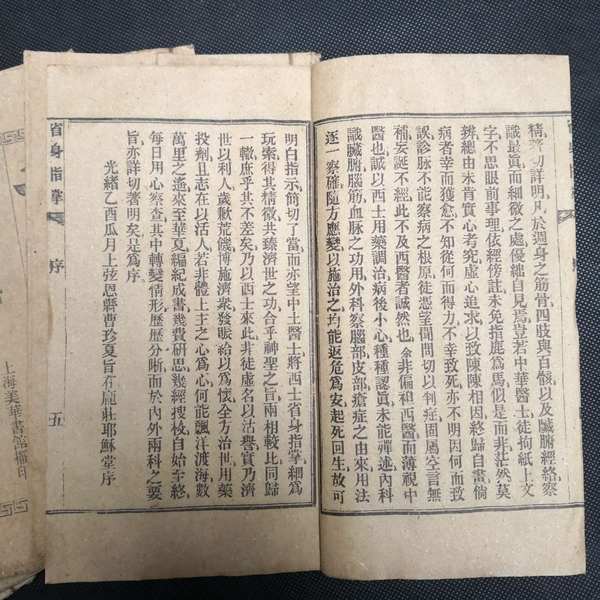 精蓍切詳明凡於週身之筋骨四肢與百骸以及臟腑經絡察
識最眞而細微之處優絀自見焉豈若中華醫士徒拘紙上文
字不思眼前事理依經傍註未免指鹿爲馬似是而非茫然莫
辨總由未肯實心考究虛心追求以致陳陳相因終歸自畫倘
病者幸而獲愈不知從何而得力不幸致死亦不明因何而致
誤診脉不能察病之根原徒憑望聞問切以判症固屬空言無
補妄誕不經此不及西醫者誠然也余非偏袒西醫而薄視中
醫也誠以西士用藥調治病後小心種種認眞未能殫述內科
識臟腑腦筋血脉之功用外科察腦部皮部瘡症之由來用法
逐一察確隨方應變以施治之均能返危爲安起死回生故可
明白指示簡切了當而亦望中土醫士將西士省身指掌細爲
玩索得其精微共臻濟世之功合乎神聖之旨兩相較比同歸
一轍庶乎其不差矣乃以西士來此非徒虛名以沽譽實乃濟
世以利人歲歉荒饑博施濟衆發賑給以爲懷全方治世用藥
投劑且志在以活人若非體上主之心爲心何能飄洋渡海數
萬里之遙來至華夏編紀成書幾費研思幾經搜檢自始至終
每日用心察查其中轉變情形歷歷分晰而於內外兩科之要
旨亦詳切著明矣是爲序
光緒乙酉瓜月上弦恩縣曹珍夏旨在龐莊耶穌堂序
省身指掌
序
五
上海美華書館擺印